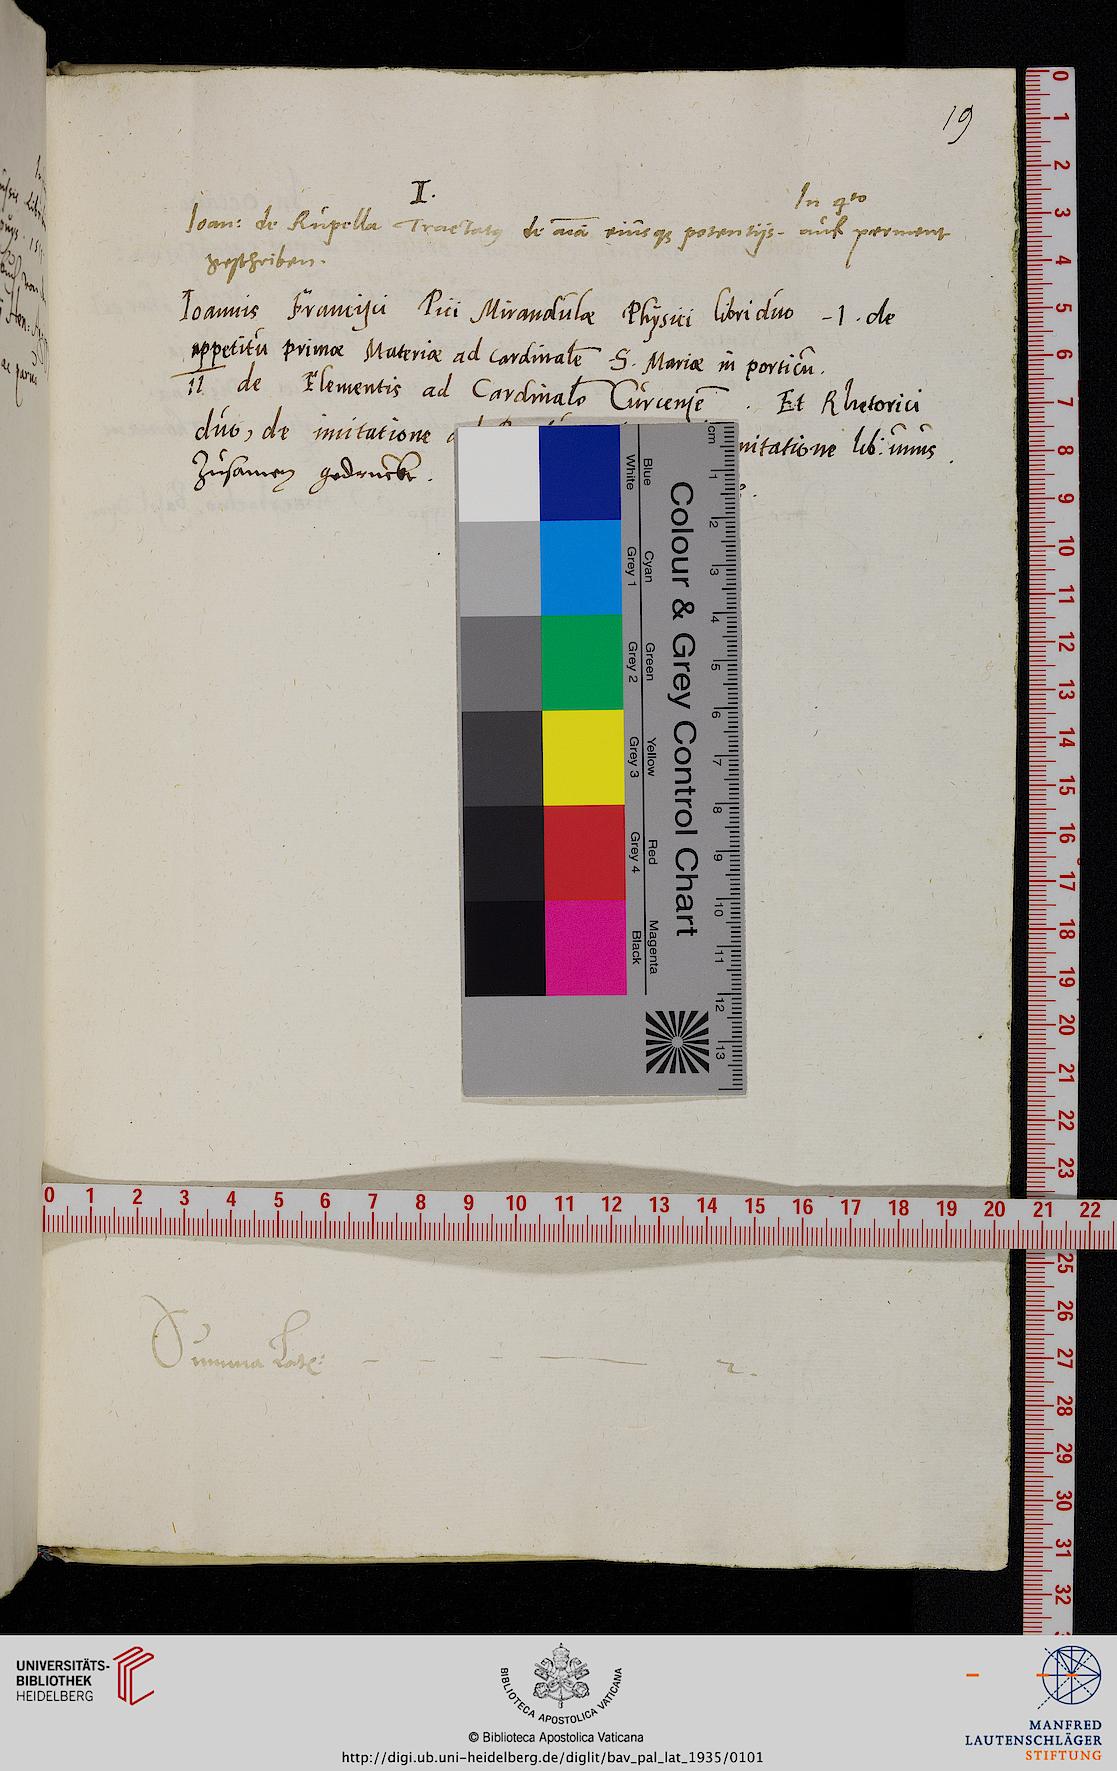 19
I.
In qto
Ioan: de Rupella Tractatus de aīa eiusqz potentijs. auf perment
geschriben.
Ioannis Francisci Pici Mirandulæ Physici libri duo - I. de
appetitu primæ Materiæ ad Cardinalē S. Mariæ in porticu.
II de Elementis ad Cardinalē Gurcensē. Et Rhetorici
duo, de imitatione
imitatione lib: unus.
Zusamen gedruckt.
Summa Late: - - - — 2.
cm 1 2 3 4 5 6 7 8 9 10 11 12 13
Colour & Grey Control Chart
Blue Cyan Green Yellow Red Magenta
White Grey 1 Grey 2 Grey 3 Grey 4 Black
0 1 2 3 4 5 6 7 8 9 10 11 12 13 14 15 16 17 18 19 20 21 22 23 25 26 27 28 29 30 31 32
0 1 2 3 4 5 6 7 8 9 10 11 12 13 14 15 16 17 18 19 20 21 22
UNIVERSITÄTS-
BIBLIOTHEK
HEIDELBERG
BIBLIOTECA APOSTOLICA VATICANA
© Biblioteca Apostolica Vaticana
http://digi.ub.uni-heidelberg.de/diglit/bav_pal_lat_1935/0101
MANFRED
LAUTENSCHLÄGER
STIFTUNG